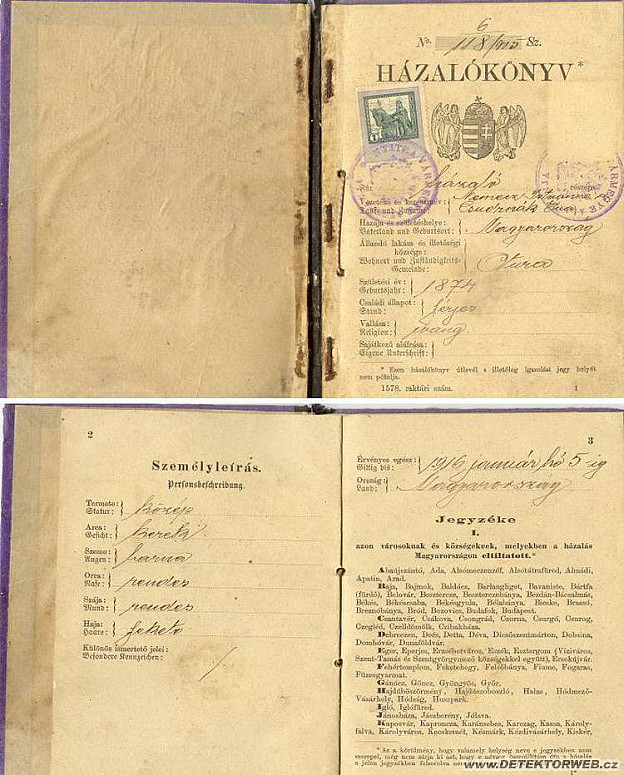 6
No. 118/915 Sz.
HÁZALÓKÖNYV*
NYITRA VÁRMEGYE
házaló részére
Vezeték- és keresztnév:
Namecz Istvánné
Hazája és születéshelye:
Vaterland und Geburtsort:
Magyarország
Állandó lakása és illetőségi
községe:
Wohnort und Zuständigkeits-
Gemeinde:
Otura
Születési év:
Geburtsjahr:
1874
Családi állapot:
Stand:
férjes
Vallása:
Religion:
evang
Sajátkezű aláírása:
Eigene Unterschrift:
* Ezen házalókönyv útlevél s illetőleg igazolási jegy helyét
nem pótolja.
1578. raktári szám. 1
2
Személyleírás.
Personsbeschreibung.
Termete:
Statur:
közép
Arca:
Gesicht:
kerek
Szeme:
Augen:
barna
Orra:
Nase:
rendes
Szája:
Mund:
rendes
Haja:
Haare:
fekete
Különös ismertető jelei:
Besondere Kennzeichen:
3
Érvényes egész:
Giltig bis:
1916 január hó 5-ig
Ország:
Land:
Magyarország
Jegyzéke
I.
azon városoknak és községeknek, melyekben a házalás
Magyarországon eltiltatott.*
Abaújszántó, Ada, Alsómeczenzéf, Alsótátrafüred, Almádi,
Apatin, Arad.
Baja, Bajmok, Baldócz, Barlangliget, Bavaniste, Bártfa
(fürdő), Belovár, Besztercze, Beszterczebánya, Bezdán-Bácsalmás,
Békés, Békéscsaba, Békésgyula, Bélabánya, Bicske, Brassó,
Breznóbánya, Bród, Bozovics, Budafok, Budapest.
Csantavér, Csákova, Csongrád, Csorna, Csurgó, Csurog,
Czegléd, Czelldömölk, Czibakháza.
Debreczen, Deés, Detta, Déva, Dicsőszentmárton, Dobsina,
Dombóvár, Dunaföldvár.
Eger, Eperjes, Erzsébetváros, Eszék, Esztergom (Víziváros,
Szent-Tamás és Szentgyörgymező községekkel együtt), Érsekújvár.
Fehértemplom, Feketehegy, Felsőbánya, Fiume, Fogaras,
Füzesgyarmat.
Gánócz, Göncz, Gyöngyös, Győr.
Hajdúböszörmény, Hajdúszoboszló, Halas, Hódmező-
Vásárhely, Hódság, Huszpark.
Igló, Iglófüred.
Jánosháza, Jászberény, Jólsva.
Kaposvár, Kaproncza, Karánsebes, Karczag, Kassa, Károly-
falva, Károlyváros, Kecskemét, Késmárk, Kézdivásárhely, Kiskér,
* Az a körülmény, hogy valamely helység neve e jegyzékben nem
szerepel, még nem zárja ki azt, hogy a
a jelen jegyzékben felsorolva
WWW.DETEKTORWEB.cz